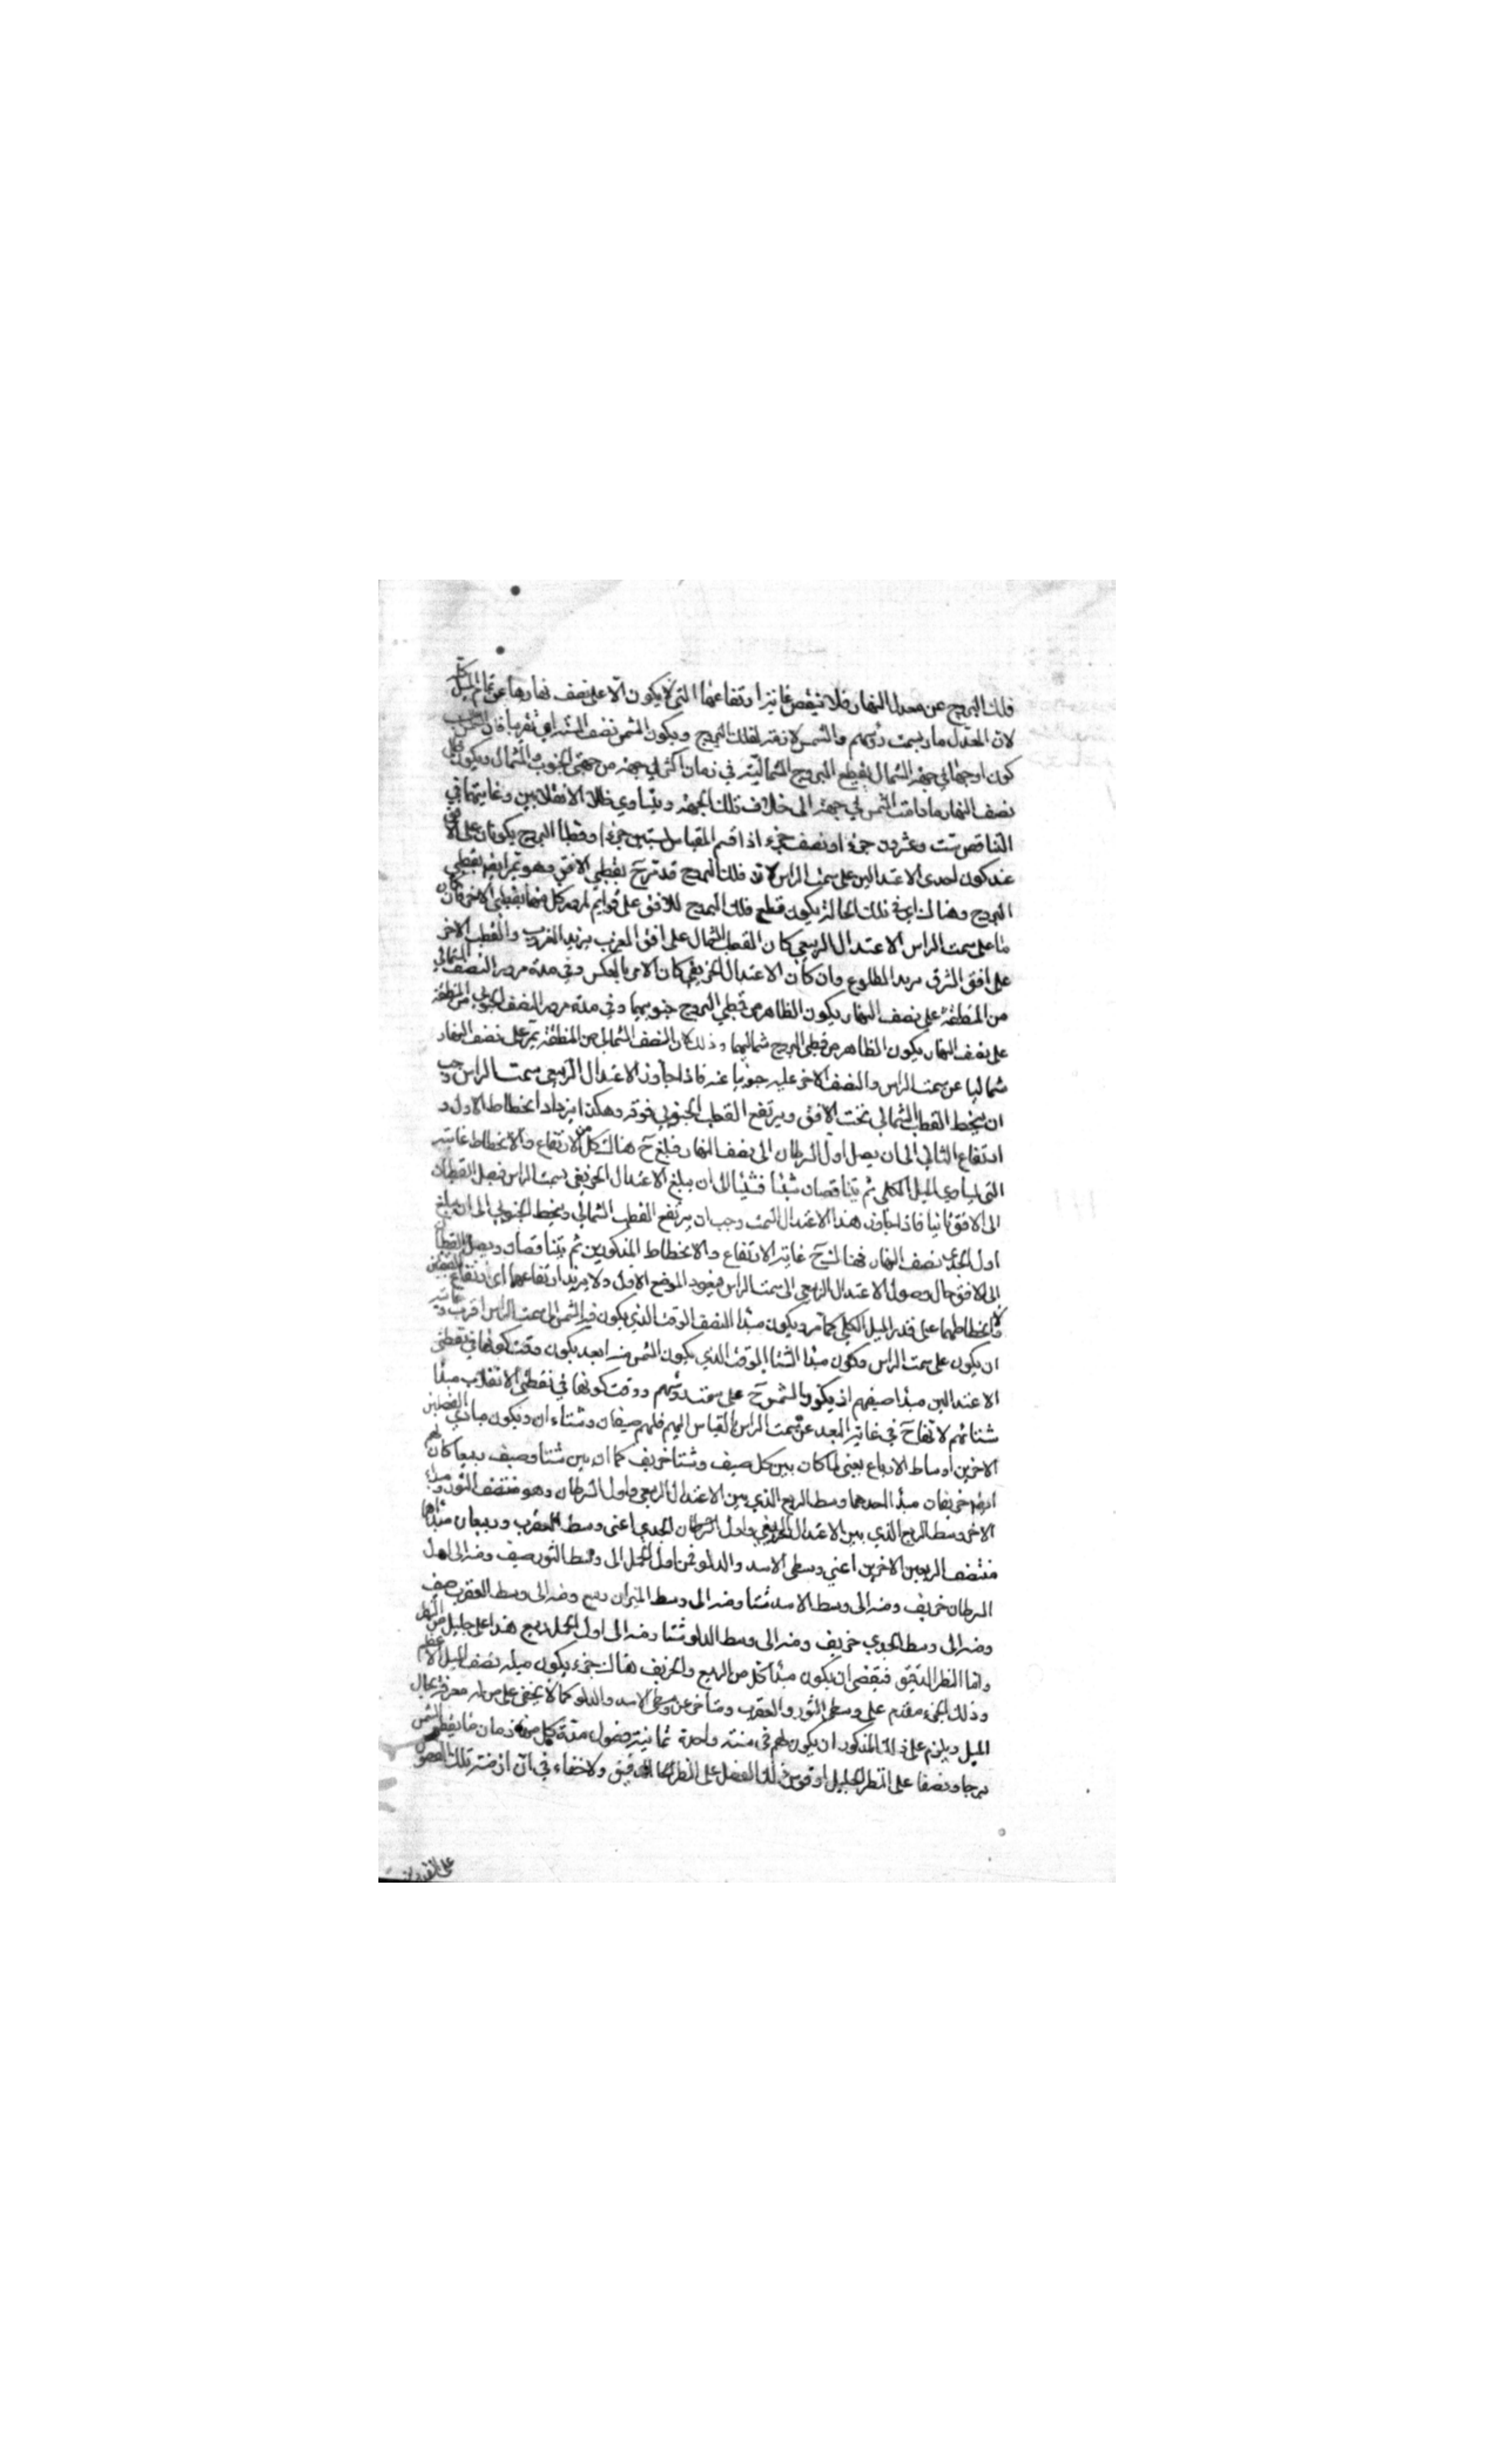 فلك البروج عن معدل النهار فلا ينقص غاية ارتفاعها التي لا يكون الا على نصف نهارها عن تمام الميل كله
لان المعدل مار بسمت رؤسهم والشمس لازمة لفلك البروج ويكون الشمس نصف السنة اي تقريبا فان
كون اوجها في جهة الشمال يقطع البروج الشمالية في زمان اكثر في جهة من جهتي الجنوب والشمال ويكون ظل
نصف النهار ما دامت الشمس في جهة الى خلاف تلك الجهة ويتساوي ظلال الانقلابين وغايتهما في
التناقص ست وعشرون جزءا ونصف جزء اذا قسم المقياس لستين جزءا وقطبا البروج يكونان على الافق
عند كون احدى الاعتدالين على سمت الراس لان فلك البروج قد مر ح بقطبي الافق وهو يمر ايضا بقطبي
البروج وهنالك اي في تلك الحالة يكون قطع فلك البروج للافق على قوايم لمرور كل منهما بقطبي الاخر فان كان
ما على سمت الراس الاعتدال الربيعي كان القطب الشمالي على افق المغرب يريد الغروب والقطب الاخر
على افق الشرق مريد الطلوع وان كان الاعتدال الخريفي كان الامر بالعكس وفي مدة مرور النصف الشمالي
من المنطقة على نصف النهار يكون الظاهر من قطبي البروج جنوبيهما وفي مدة مرور النصف الجنوبي من المنطقة
على نصف النهار يكون الظاهر من قطبي البروج شماليهما وذلك لان النصف الشمالي من المنطقة يمر على نصف النهار
شماليا عن سمت الراس والنصف الاخر عليه جنوبيا عنه فاذا جاوز الاعتدال الربيعي سمت الراس وجب
ان ينحط القطب الشمالي تحت الافق ويرتفع القطب الجنوبي فوقه وهكذا يزداد انحطاط الاول و
ارتفاع الثاني الى ان يصل اول السرطان الى نصف النهار فبلغ ح هناك كل من الارتفاع والانحطاط غايته
التي تساوي الميل الكلي ثم يتناقصان شيئا فشيئا الى ان يبلغ الاعتدال الخريفي سمت الراس فيصل القطبان
الى الافق ثانيا فاذا جاوز هذا الاعتدال السمت وجب ان يرتفع القطب الشمالي وينحط الجنوبي الى ان يبلغ
اول الجدي نصف النهار فهنالك ح غاية الارتفاع والانحطاط المذكورين ثم يتناقصان ويصل القطبان
الى الافق حال وصول الاعتدال الربيعي الى سمت الراس فيعود الوضع الاول ولا يزيد ارتفاعهما اي ارتفاع القطبين
ولا انحطاطهما على قدر الميل الكلي كما مر ويكون مبدا الصيف الوقت الذي يكون فيه الشمس الى سمت الراس اقرب وغايته
ان يكون على سمت الراس ويكون مبدا الشتا الوقت الذي يكون الشمس منه ابعد يكون وقت كونها في نقطتي
الاعتدالين مبدا صيفهم اذ يكون الشمس ح على سمت رؤسهم ووقت كونها في نقطتي الانقلاب مبدا
شتائهم لانها ح في غاية البعد عن سمت الراس بالقياس اليهم فلهم صيفان وشتاءان ويكون مبادي الفصلين
الاخرين اوساط الارباع يعني لما كان بين كل صيف وشتا خريف كما ان بين شتا وصيف ربيعا كان لهم
ايضا خريفان مبدا احدهما وسط الربع الذي بين الاعتدال الربيعي واول السرطان وهو منتصف الثور ومبدا
الاخر وسط الربع الذي بين الاعتدال الخريفي واول الجدي اعني وسط العقرب وربيعان مبداهما
منتصف الربعين الاخرين اعني وسطي الاسد والدلو فمن اول الحمل الى وسط الثور صيف ومنه الى اول
السرطان خريف ومنه الى وسط الاسد شتا ومنه الى وسط الميزان ربيع ومنه الى وسط العقرب صيف
ومنه الى وسط الجدي خريف ومنه الى وسط الدلو شتا ومنه الى اول الحمل ربيع هذا على جليل من النظر
واما النظر الدقيق فيقتضي ان يكون مبدا كل من الربيع والخريف هناك جزء يكون ميله نصف الميل الاعظم
وذلك الجزء مقدم على وسطي الثور والعقرب ومتاخر عن وسطي الاسد والدلو كما لا يخفى على من له معرفة بحال
الميل ويلزم على ذلك المذكور ان يكون لهم في سنة واحدة ثمانية فصول مدة كل منها زمان ما يقطع الشمس
برجا ونصفا على النظر الجليل او قوس ذلك الفصل على النظر الدقيق ولا خفاء في ان ازمنة تلك الفصول
على التقديرين